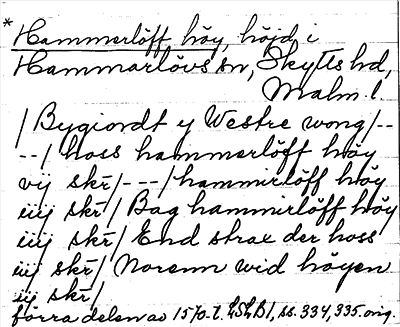 * Hammerlöff höy, höjd i
Hammarlövs sn, Skytts hd,
Malm. l
/ Bygiordt y Westre wong /--
--/ hoss hammerlöff höy
vij skr̄ /---/ hammirlöff höy
iiij skr̄ / Bag hammirlöff höy
iiij skr̄ / End strax der hoss
iij skr̄ / Norenn wid höyen
iij skr̄ /
förra delen av 1570-t. LSLB1, ss. 334, 335. orig.